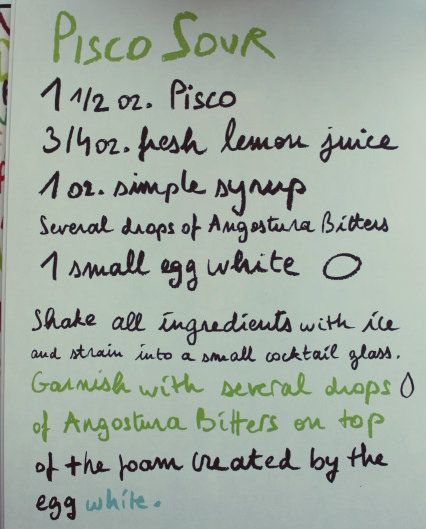 Pisco Sour
1 1/2 oz. Pisco
3/4 oz. fresh lemon juice
1 oz. simple syrup
Several drops of Angostura Bitters
1 small egg white
Shake all ingredients with ice
and strain into a small cocktail glass.
Garnish with several drops
of Angostura Bitters on top
of the foam created by the
egg white.